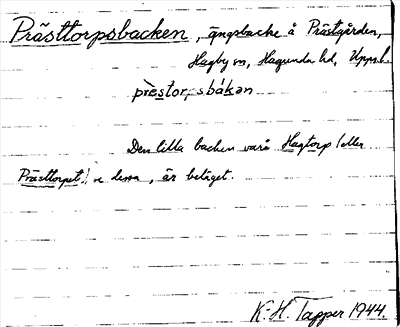 Prästtorpsbacken, ängsbacke å Prästgården,
Hagby sn, Hagunda hd, Upps.l.
prèstorpsbákan
Den lilla backen varå Hagtorp (eller
Prästtorpet) se dessa, är beläget.
K-H. Tapper 1944.